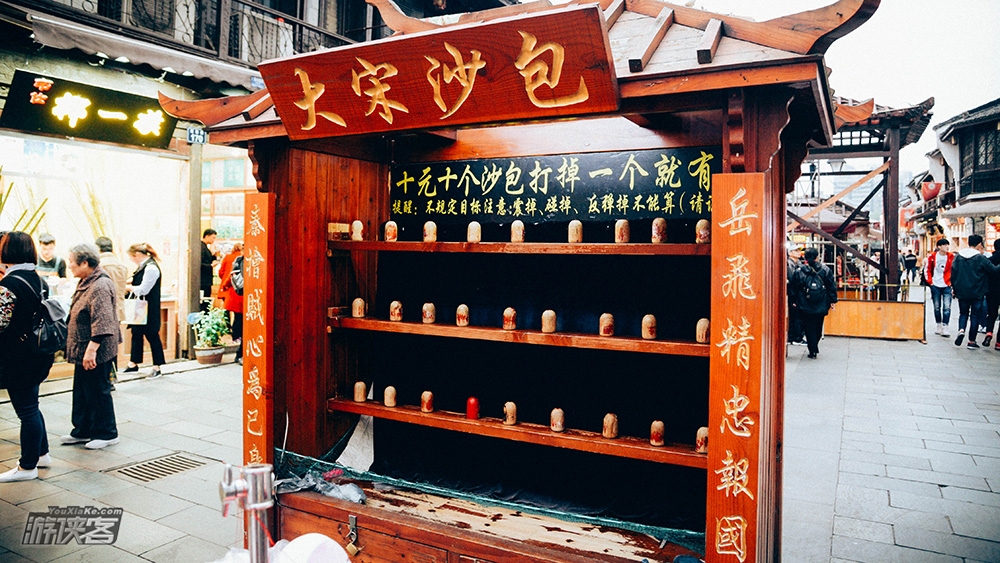 大宋沙包
十元十个沙包打掉一个就有
提醒：不规定目标注意：震掉、碰掉、反弹掉不能算（请
岳飛精忠報國
秦檜賊心爲己身
一
游侠客
YouXiaKe.com